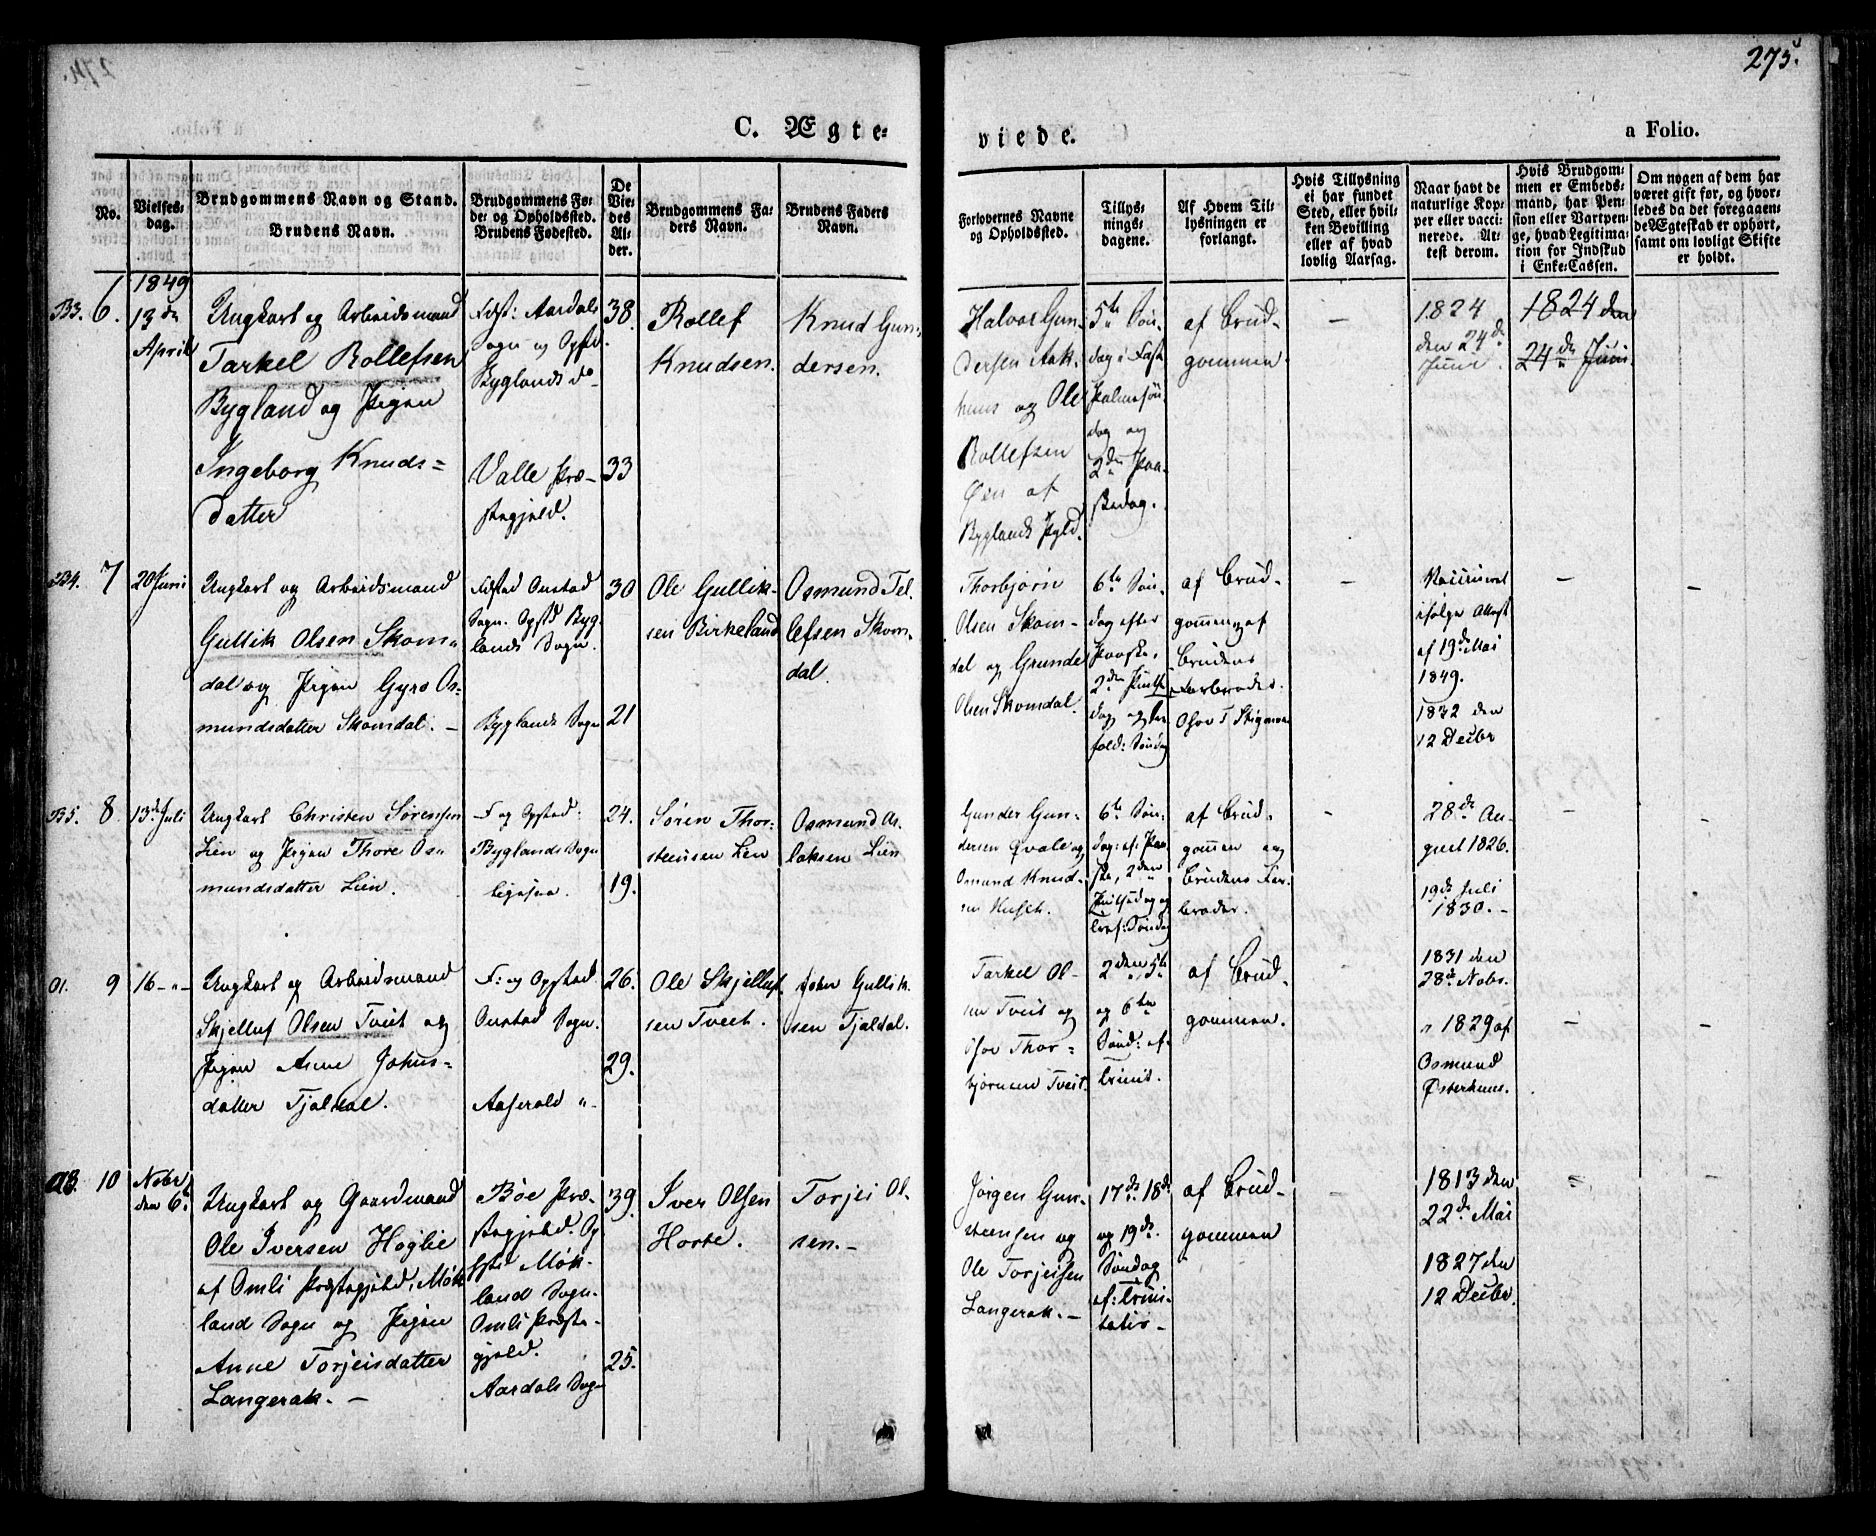 274.
275.
C. Ægte-
viede.
a Folio.
No.
Vielses-
dag.
Brudgommens Navn og Stand.
Brudens Navn.
Brudgommens Fø-
de- og Opholdssted.
Brudens Fødested.
De
Vie-
des
Al-
der.
Brudgommens Fa-
ders Navn.
Brudens Faders
Navn.
Forlovernes Navne
og Opholdssted.
Tillys-
nings-
dagene.
Af Hvem Til-
lysningen er
forlangt.
Hvis Tillysning
ei har fundet
Sted, eller hvil-
ken Bevilling
eller af hvad
lovlig Aarsag.
Naar havt de
naturlige Kop-
per eller vacci-
nerede. At-
test derom.
Hvis Brudgom-
men er Embeds-
mand, har Pen-
sion eller Vartpen-
ge, hvad Legitima-
tion for Indskud
i Enke-Cassen.
Om nogen af dem har
været gift før, og hvor-
ledes da det foregaaen-
de Ægteskab er ophørt,
samt om lovligt Skifte
er holdt.
B3. 6.
1849
13de
April
Ungkarl og Arbeidsmand
Tarkel Rollefsen
Bygland og Pigen
Ingeborg Knuds-
datter
Fdst: Aardals
Sogn og Opst
Byglands do
Valle Præ-
stegjeld.
38.
33
Rollef
Knudsen.
Knud Gun-
dersen.
Halvor Gun-
dersen Aak-
huus og Ole
Rollefsen
Øen af
Byglands Pgld.
5te Søn-
dag i Fast
Palmesøn-
dag og
2den Paa-
skedag.
af Brud-
gommen.
–
1824
den 24de
Juni.
1824 den
24de Juni.
B4. 7
20 Juni
Ungkarl og Arbeidsmand
Gullik Olsen Skom-
dal og Pigen Gyro Os-
mundsdatter Skomdal. –
Fdsted Oustad
Sogn. Opstd Byg-
lands Sogn.
Byglands Sogn
30
21
Ole Gullik-
sen Birkeland
Osmund Tel-
lefsen Skom-
dal.
Thorbjørn
Olsen Skom-
dal og Grunde
Olsen Skomdal.
6te Søn-
dag efter
Paaske,
2den Pintse-
dag og
Søndag
af Brud-
gommen og af
Brudens
Farbroder.
–
Vaccineret
ifølge Attest
af 19de Mai
1849.
1832 den
12 Decbr
–
–
B5. 8.
13de Juli
Ungkarl Christen Sørensen
Lien og Pigen Thore Os-
mundsdatter Lien.
F og Opsted:
Byglands Sogn
ligesaa.
24.
19.
Søren Thor-
steinsen Lien
Osmund As-
laksen Lien
Gunder Gun-
dersen Øvale og
Osmund Knud-
sen
6te Søn-
dag: ef: Paa-
ske, 2den
Pintsedag og
Søndag
af Brud-
gommen og
Brudens Far-
broder.
28de Au-
gust 1826.
19de Juli
1830. –
–
–
O1. 9
16 – " –
Ungkarl og Arbeidsmand
Skjelluf Olsen Tveit og
Pigen Anne Johns-
datter Tjaldal.
F: og Opsted
Oustad Sogn.
Aaserald " –
26.
29.
Ole Skjelluf-
sen Tveit.
John Gullik-
sen Tjaldal.
Tarkel Ol-
sen Tveit og
Thor-
bjørnsen Tveit.
2den, 5te
og 6te
Sønd: ef-
trinit.
af Brud-
gommen.
1831 den
28de Nobr.
" 1829 af
Osmund
Østerhuus.
–
–
10
Nobr
den 6te
Ungkarl og Gaardmand
Ole Iversen Høglie
af Omli Præstegjeld, Møk-
land Sogn og Pigen
Anne Torjeisdatter
Langerak. –
Bøe Præ-
stegjeld. Op-
Møk-
land Sogn.
Omli Præste-
gjeld.
Aardals Sogn
39.
25.
Iver Olsen
Horte.
Torjei Ol-
sen. –
Jørgen Gun-
steensen og
Ole Torjeisen
Langerak. –
17de, 18de
og 19de
Søndag
ef: trini-
tatis –
af Brud-
gommen
–
1813 den
22de Mai
1827 den
12 Decbr.
–
–